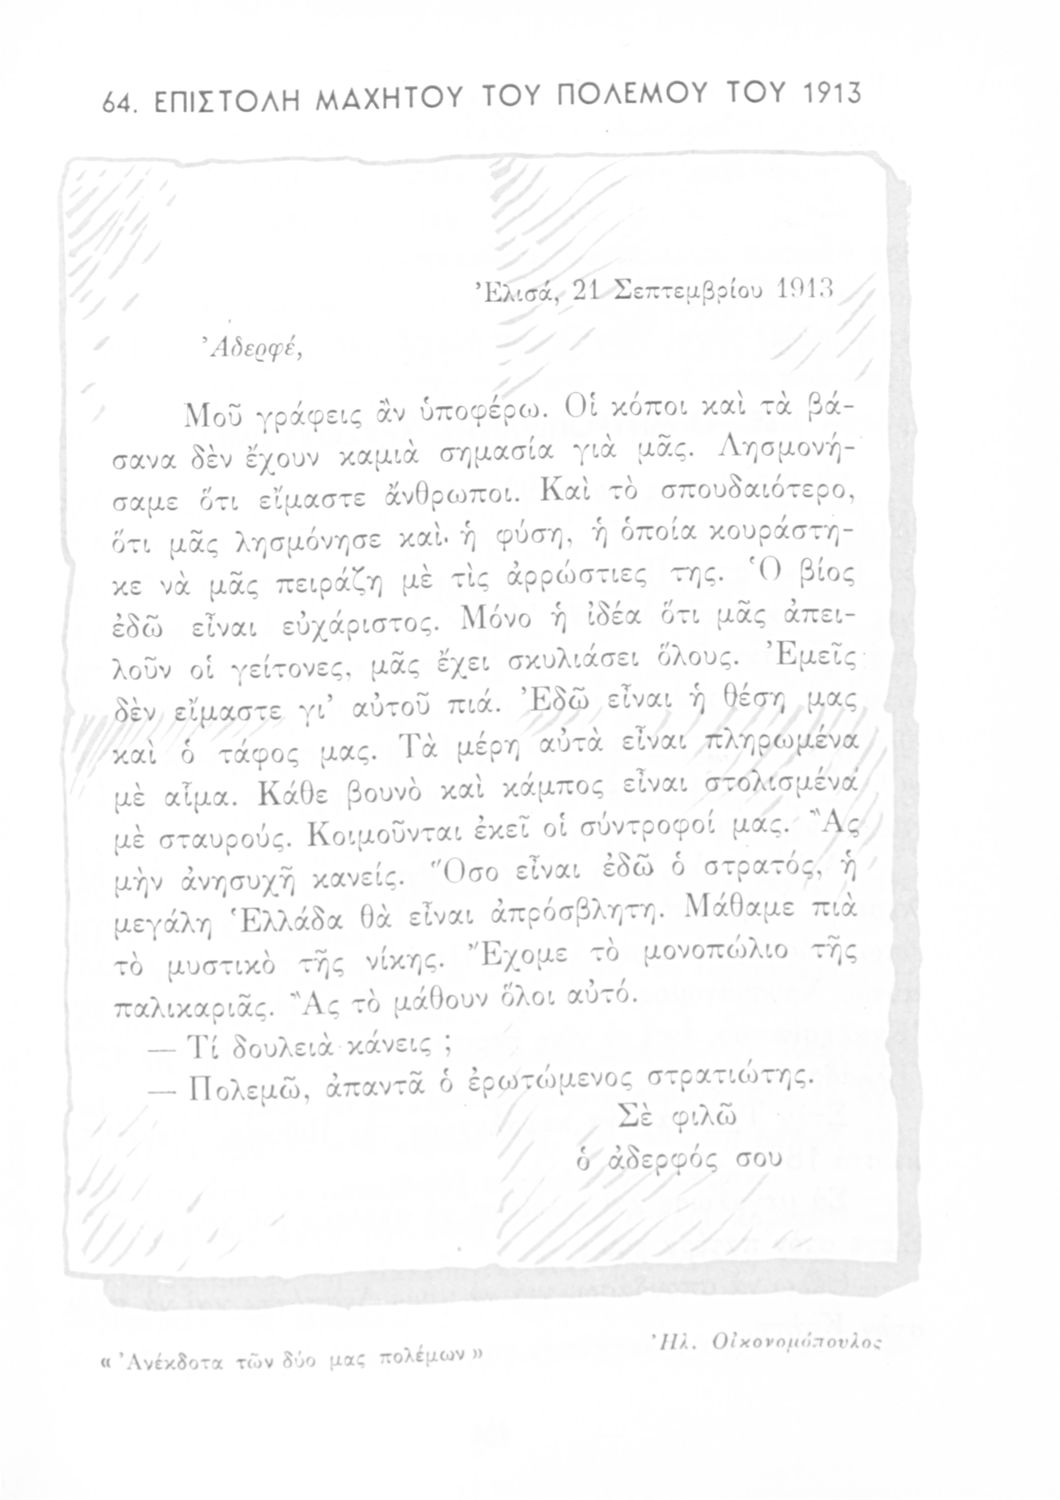 64. ΕΠΙΣΤΟΛΗ ΜΑΧΗΤΟΥ ΤΟΥ ΠΟΛΕΜΟΥ ΤΟΥ 1913
Ἐλισά, 21 Σεπτεμβρίου 1913
Ἀδερφέ,
Μοῦ γράφεις ἂν ὑποφέρω. Οἱ κόποι καὶ τὰ βά-
σανα δὲν ἔχουν καμιὰ σημασία γιὰ μᾶς. Λησμονή-
σαμε ὅτι εἴμαστε ἄνθρωποι. Καὶ τὸ σπουδαιότερο,
ὅτι μᾶς λησμόνησε καὶ ἡ φύση, ἡ ὁποία κουράστη-
κε νὰ μᾶς πειράζῃ μὲ τὶς ἀρρώστιες της. Ὁ βίος
ἐδῶ εἶναι εὐχάριστος. Μόνο ἡ ἰδέα ὅτι μᾶς ἀπει-
λοῦν οἱ γείτονες, μᾶς ἔχει σκυλιάσει ὅλους. Ἐμεῖς
δὲν εἴμαστε γι’ αὐτοῦ πιά. Ἐδῶ εἶναι ἡ θέση μας
καὶ ὁ τάφος μας. Τὰ μέρη αὐτὰ εἶναι πληρωμένα
μὲ αἷμα. Κάθε βουνὸ καὶ κάμπος εἶναι στολισμένα
μὲ σταυρούς. Κοιμοῦνται ἐκεῖ οἱ σύντροφοί μας. Ἂς
μὴν ἀνησυχῇ κανείς. Ὅσο εἶναι ἐδῶ ὁ στρατός, ἡ
μεγάλη Ἑλλάδα θὰ εἶναι ἀπρόσβλητη. Μάθαμε πιὰ
τὸ μυστικὸ τῆς νίκης. Ἔχομε τὸ μονοπώλιο τῆς
παλικαριᾶς. Ἂς τὸ μάθουν ὅλοι αὐτό.
— Τί δουλειὰ κάνεις ;
— Πολεμῶ, ἀπαντᾶ ὁ ἐρωτώμενος στρατιώτης.
Σὲ φιλῶ
ὁ ἀδερφός σου
« Ἀνέκδοτα τῶν δύο μας πολέμων »
Ἠλ. Οἰκονομόπουλος